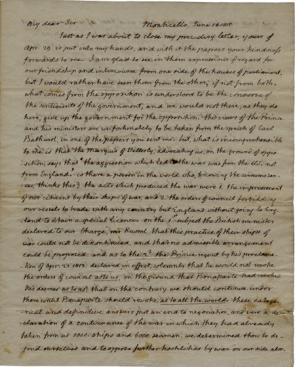 My dear Sir Monticello June
Just as I was about to close my preceding letter, yours of
Apr. 29 is put into my hands, and with it the papers your kindness
forwards to me. I am glad to see in them expressions of regard for
our friendship and intercourse from one side of the houses of parliament,
but I would rather have seen them from the other, if not from both.
what comes from the opposition is understood to be the converse of
the sentiments of the government, and we would not there, as they do
here, give up the government for the opposition. the views of the Prince
and his ministers are unfortunately to be taken from the speech of Earl
Bathurst, in one of the papers you sent me. but what is incomprehensible
to me is that the Marquis of Wellesley, advocating us, on the ground of oppo-
sition, says that 'the aggression which led to the war was from the US, not
from England.' is there a person in the world who, knowing the circumstan-
ces, thinks this? the acts which produced the war were 1. the impressment
of our citizens by their ships of war, and 2. the orders of council forbidding
our vessels to trade with any country but England, without going to Eng-
land to obtain a special licence. on the 1st subject the British minister
declared to our Chargé, mr Russel, that this practice of their ships of
war could not be discontinued, and that no admissible arrangement
could be proposed: and as to the 2d the Prince regent by his proclama-
tion of Apr. 21. 1812. declared in effect solemnly that he would not revoke
the orders of council as to us, on the ground that Bonaparte had revoked
his decrees as to us; that, on the contrary we should continue under
them until Bonaparte should revoke as to all the world. these catego-
rical and definitive answers put an end to negociation, and were a de-
claration of a continuance of the war in which they had already
taken from us 1000. ships and 6000 seamen. we determined then to de-
fend ourselves and to oppose further hostilities by war on our side also.